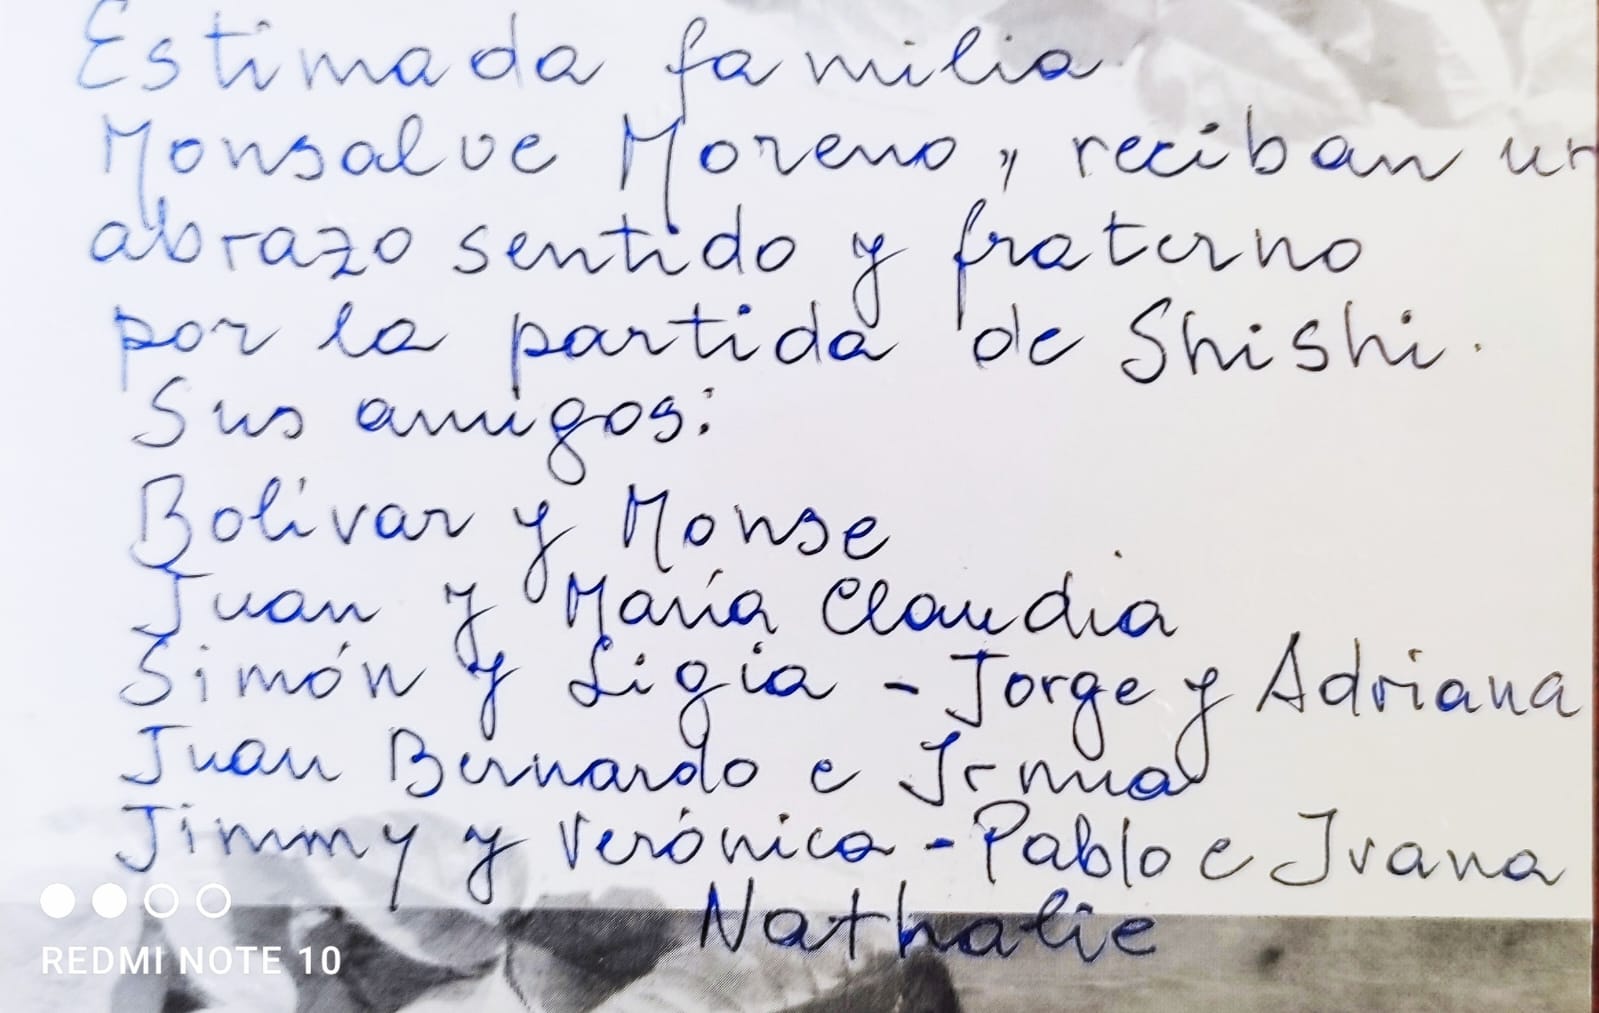 Estimada familia
Monsalve Moreno, reciban un
abrazo sentido y fraterno
por la partida de Shishi.
Sus amigos:
Bolívar y Monse
Juan y María Claudia
Simón y Ligia - Jorge y Adriana
Juan Bernardo e Irma
Jimmy y Verónica - Pablo e Ivana
Nathalie
REDMI NOTE 10